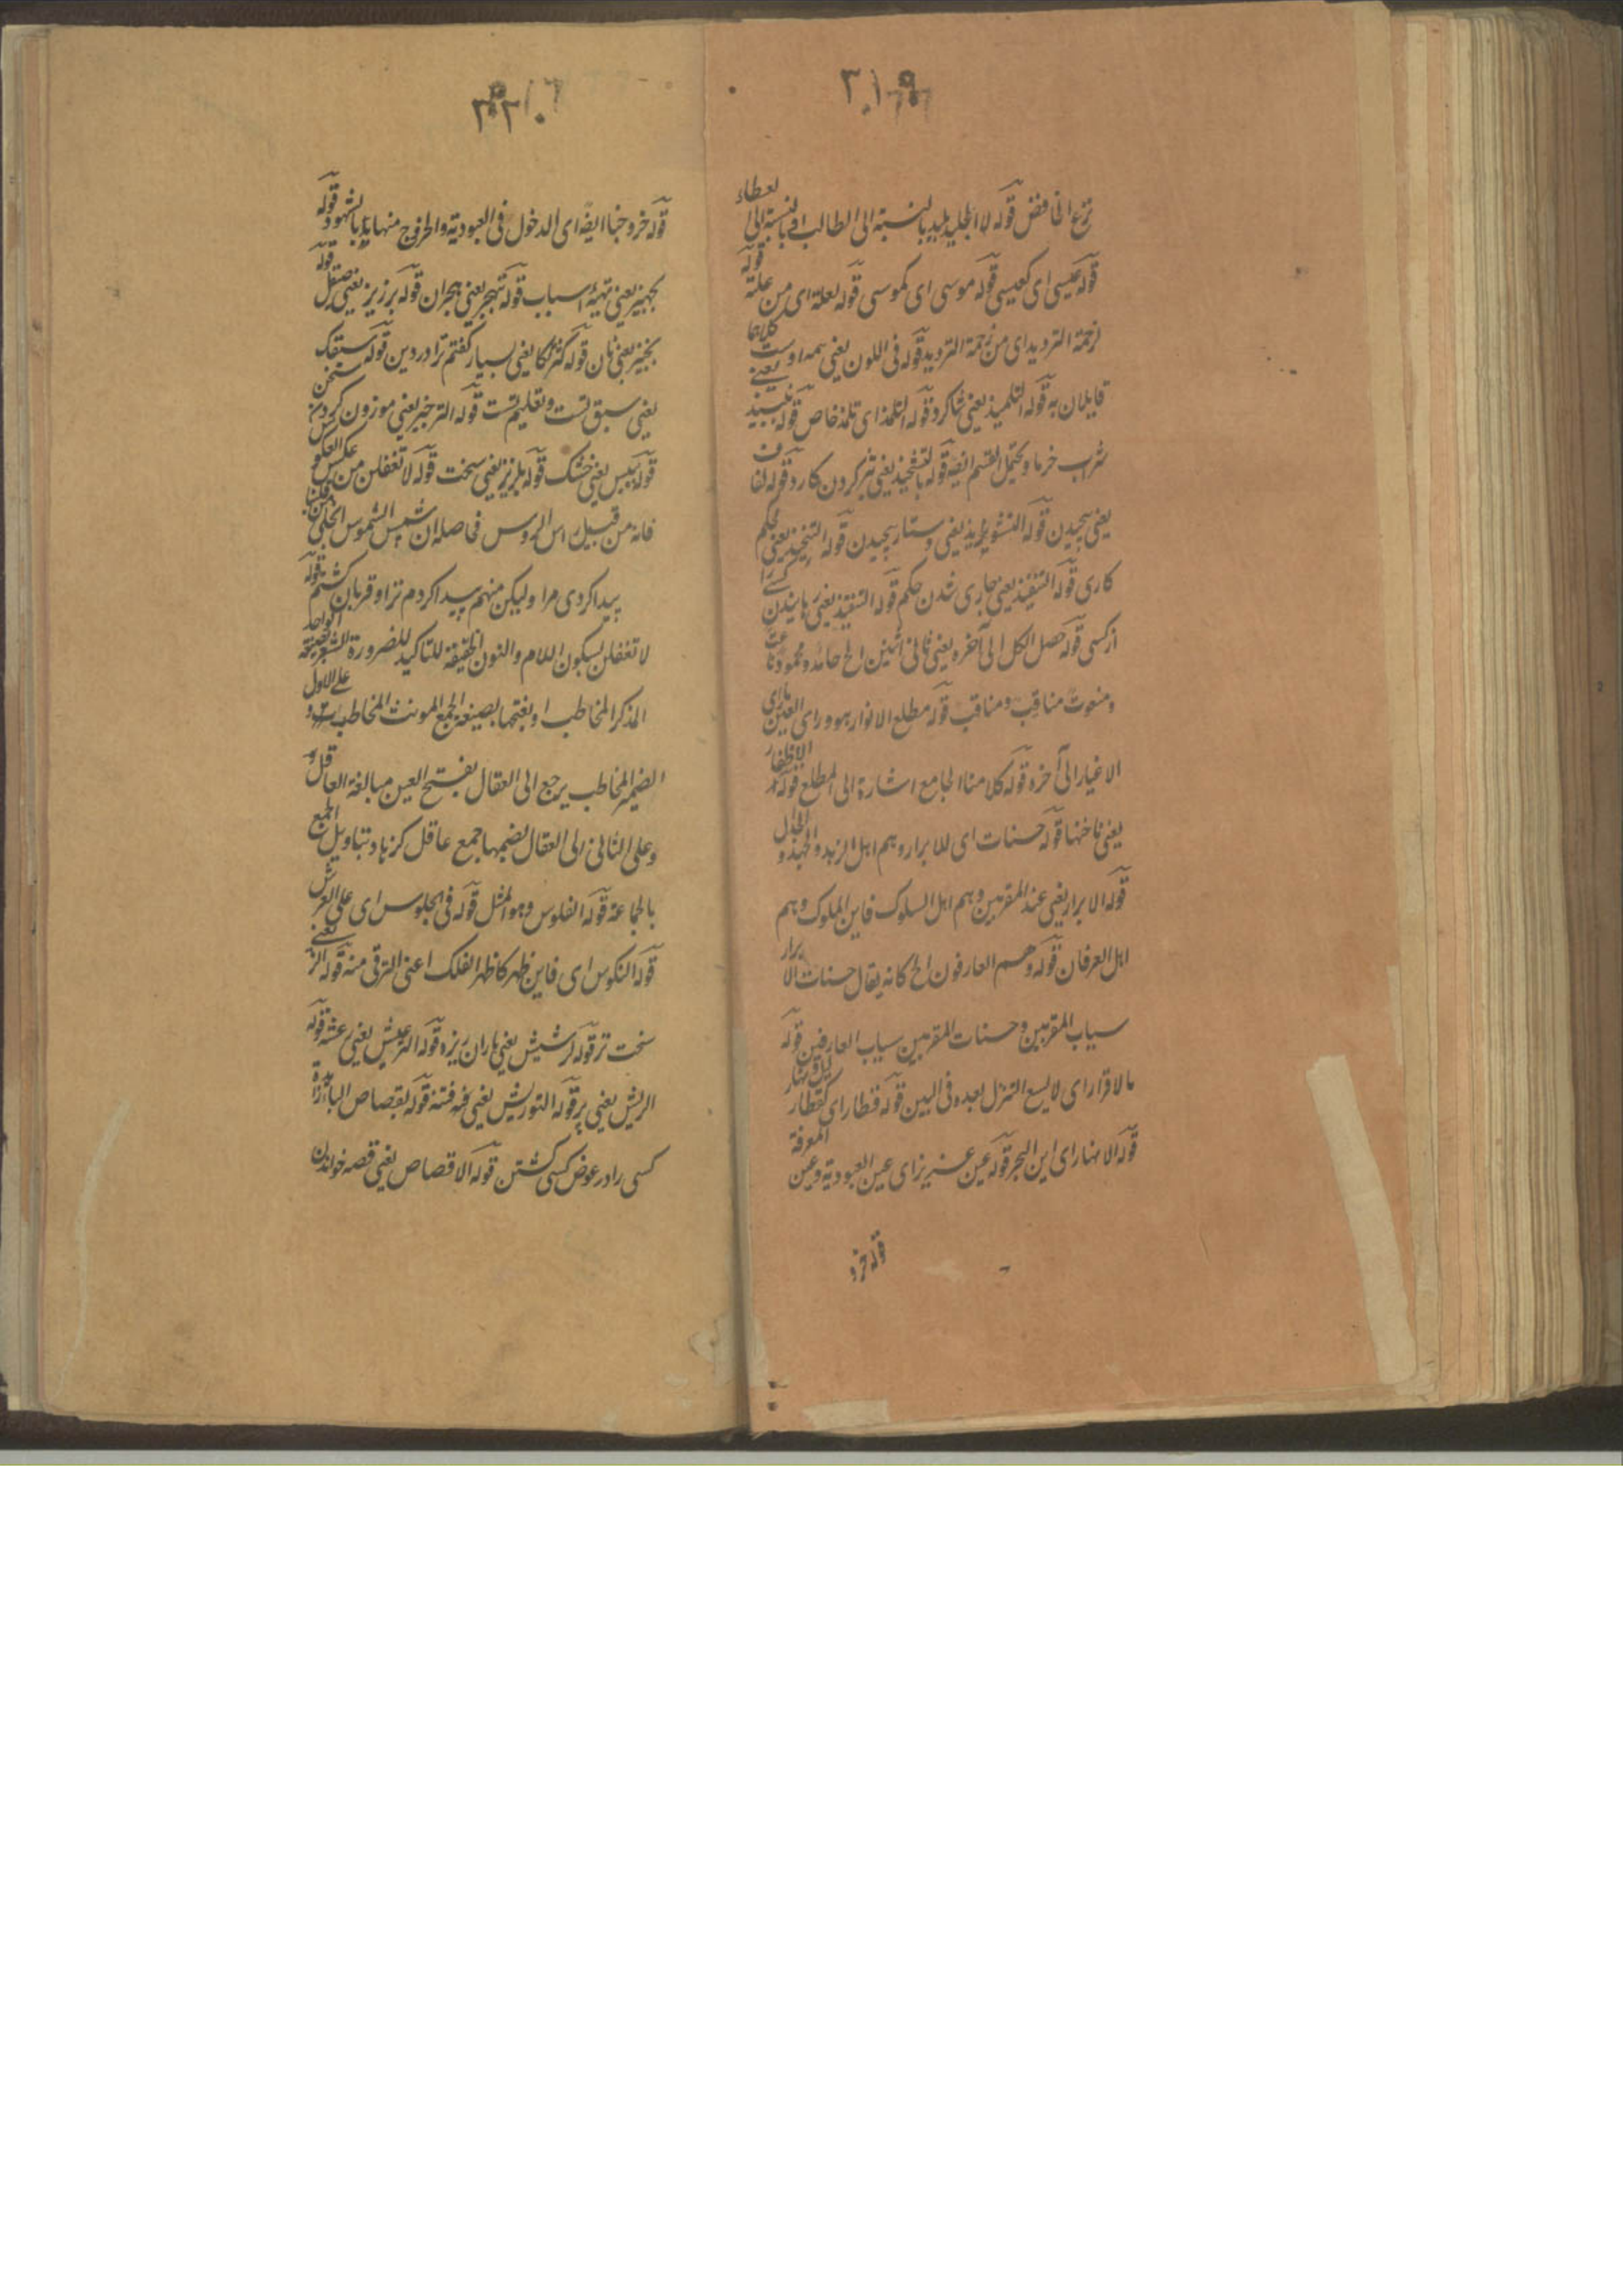 ٣١٩
نزع الخافض قوله لا الجليد بليد بالنسبة الى الطالب او بالنسبة الى العطاء
قوله عيسى اى كعيسى قوله موسى اى كموسى قوله لعلة اى من علة قوله
زحمة الترديد اى من زحمة الترديد قوله فى اللون يعنى همه اوست كلاهما
قايلان به قوله التلميذ يعنى شاكرد قوله التلمذ اى تلمذ خاص قوله نبيذ يعنے
شراب خرما ويحتمل القسم ايضه قوله بالتشحيذ يعنى تيز كردن كارد قوله لفاف
يعنى پيچيدن قوله يعنى دستار پيچيدن قوله التنجيذ يعنى محكم
كارى قوله التنفيذ يعنى جارى شدن حكم قوله التنقيذ يعنى رهانيدن كسے را
از كسى قوله حصل الكل الى آخره يعنى ثانى اثنين الخ حامد ومحمود
ومنعوت مناقب ومناقب قوله مطلع الانوار هو وراى العين ماراى
الاغيار الى آخره قوله كلامنا الجامع اشارة الى المطلع قوله الاظفار
يعنى ناخنها قوله حسنات اى للابرار وهم اهل الزهد والجهد و الجدال
قوله الابرار يعنى عند المقربين وهم اهل السلوك فاين الملوك وهم
اهل العرفان قوله وهم العارفون الخ كانه يقال حسنات الابرار
سياب المقربين وحسنات المقربين سياب العارفين قوله
مالا قرار اى لا يسع التنزل بعده فى البين قوله قنطار اى كقنطار
قوله الانهار اى اين البحر قوله عين عزيز اى عين العبودية وعين المعرفة
قوله خرو
٣٢٠
قوله خروجنا ايضه اى الدخول فى العبودية والخروج منها بالشهود قوله
تجهيز يعنى تهيئه اسباب قوله تهجر يعنى هجران قوله بر زيز يعنى صيقل قوله
بخبز يعنى نان قوله يعنى بسيار كفتم ترا در دين قوله سبقك
يعنى سبق تست وتعليم تست قوله الترجيز يعنى موزون كردن سخن
قوله يبيس يعنى خشك قوله يعنى سخت قوله لا تغفلن من عكس العكوس
فانه من قبيل راس الروس فحاصله ان شمس الشموس
پيدا كردى مرا وليكن منهم پيدا كردم ترا وقربان كشتم قوله
لا تغفلن بسكون اللام والنون الخفيفة للتاكيد للضرورة الشعرية الواحد
المذكر المخاطب او بفتحها بصيغة الجمع المونث المخاطب على الاول
الضمير المخاطب يرجع الى العقال بفتح العين مبالغة العاقل
وعلى الثانى الى العقال بضمها جمع عاقل كزهاد بتاويل الجمع
بالجماعة قوله الفلوس وهو المثل قوله فى الجلوس اى على العرش
قوله النكوس اى فاين ظهر كاظهر الفلك اعنى الترقى منه قوله يعنے
سخت تر قوله رشيش يعنى باران ريزه قوله الترعيش يعنى رعشه قوله
الريش يعنى پر قوله التوريش يعنى فتنه قوله بقصاص
كسى را در عوض كسى كشتن قوله الاقصاص يعنى قصه خواندن